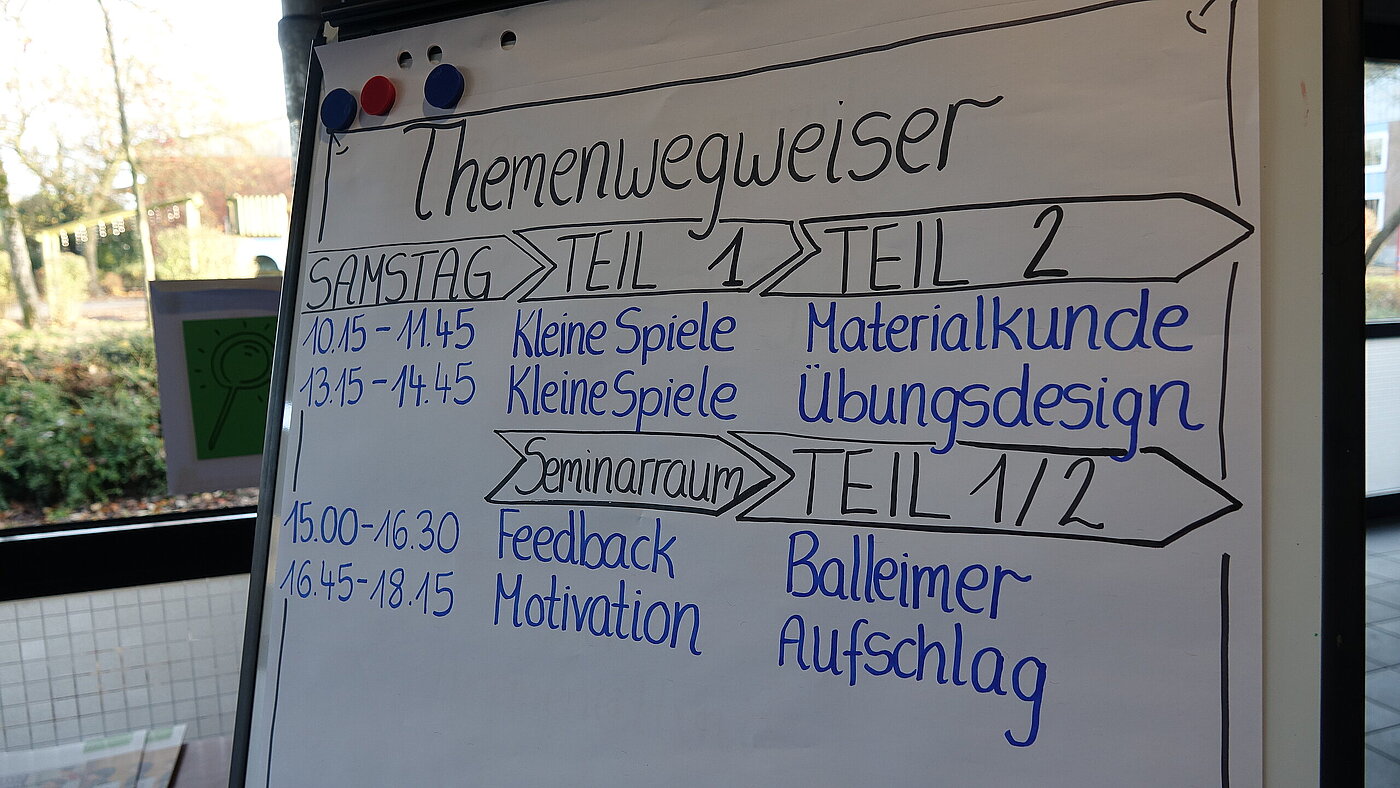 Themenwegweiser
SAMSTAG TEIL 1 TEIL 2
10.15-11.45 Kleine Spiele Materialkunde
13.15-14.45 Kleine Spiele Übungsdesign
Seminarraum TEIL 1/2
15.00-16.30 Feedback Balleimer
16.45-18.15 Motivation Aufschlag